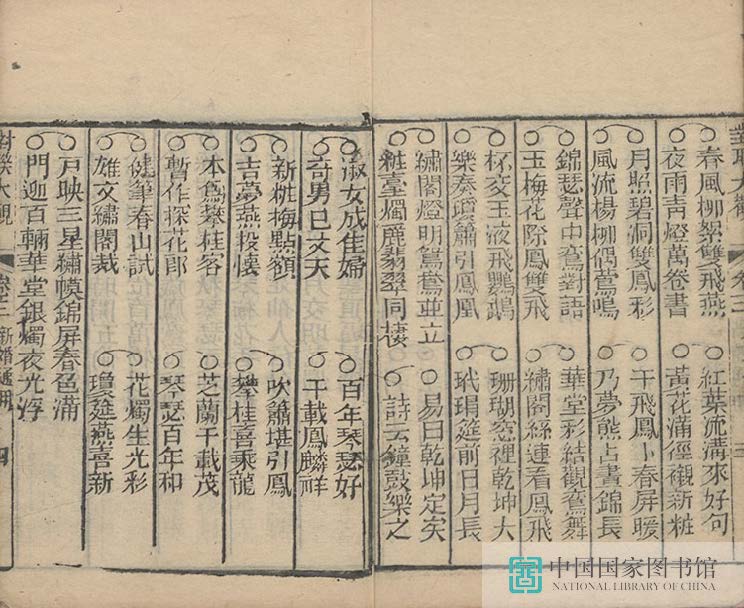 對聯大觀 卷三
春風柳絮雙飛燕
夜雨青燈萬卷書
紅葉流溝來好句
黃花滿徑襯新粧
月照碧洞雙鳳彩
風流楊柳偶鶯鳴
于飛鳳卜春屏暖
乃夢熊占晝錦長
錦瑟聲中鸞對語
玉梅花際鳳雙飛
華堂彩結觀鸞舞
繡閣絲連看鳳飛
杯交玉液飛鸚鵡
樂奏瓊簫引鳳凰
珊瑚窓裡乾坤大
玳瑁筵前日月長
繡閣燈明鴛鴦並立
粧臺燭麗翡翠同棲
易曰乾坤定矣
詩云鐘鼓樂之
淑女成佳婦
奇男已丈夫
百年琴瑟好
千載鳳麟祥
新梳梅點額
吉夢燕投懷
吹簫堪引鳳
攀桂喜乘龍
本爲攀桂客
暫作探花郎
芝蘭千載茂
琴瑟百年和
健筆春山試
雄文繡閣裁
花燭生光彩
瓊筵燕喜新
戶映三星繡幙錦屏春色滿
門迎百輛華堂銀燭夜光浮
對聯大觀 卷之三 新婚通用 四
中国国家图书馆
NATIONAL LIBRARY OF CHINA